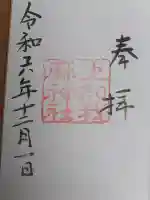 奉拝
令和六年十二月一日